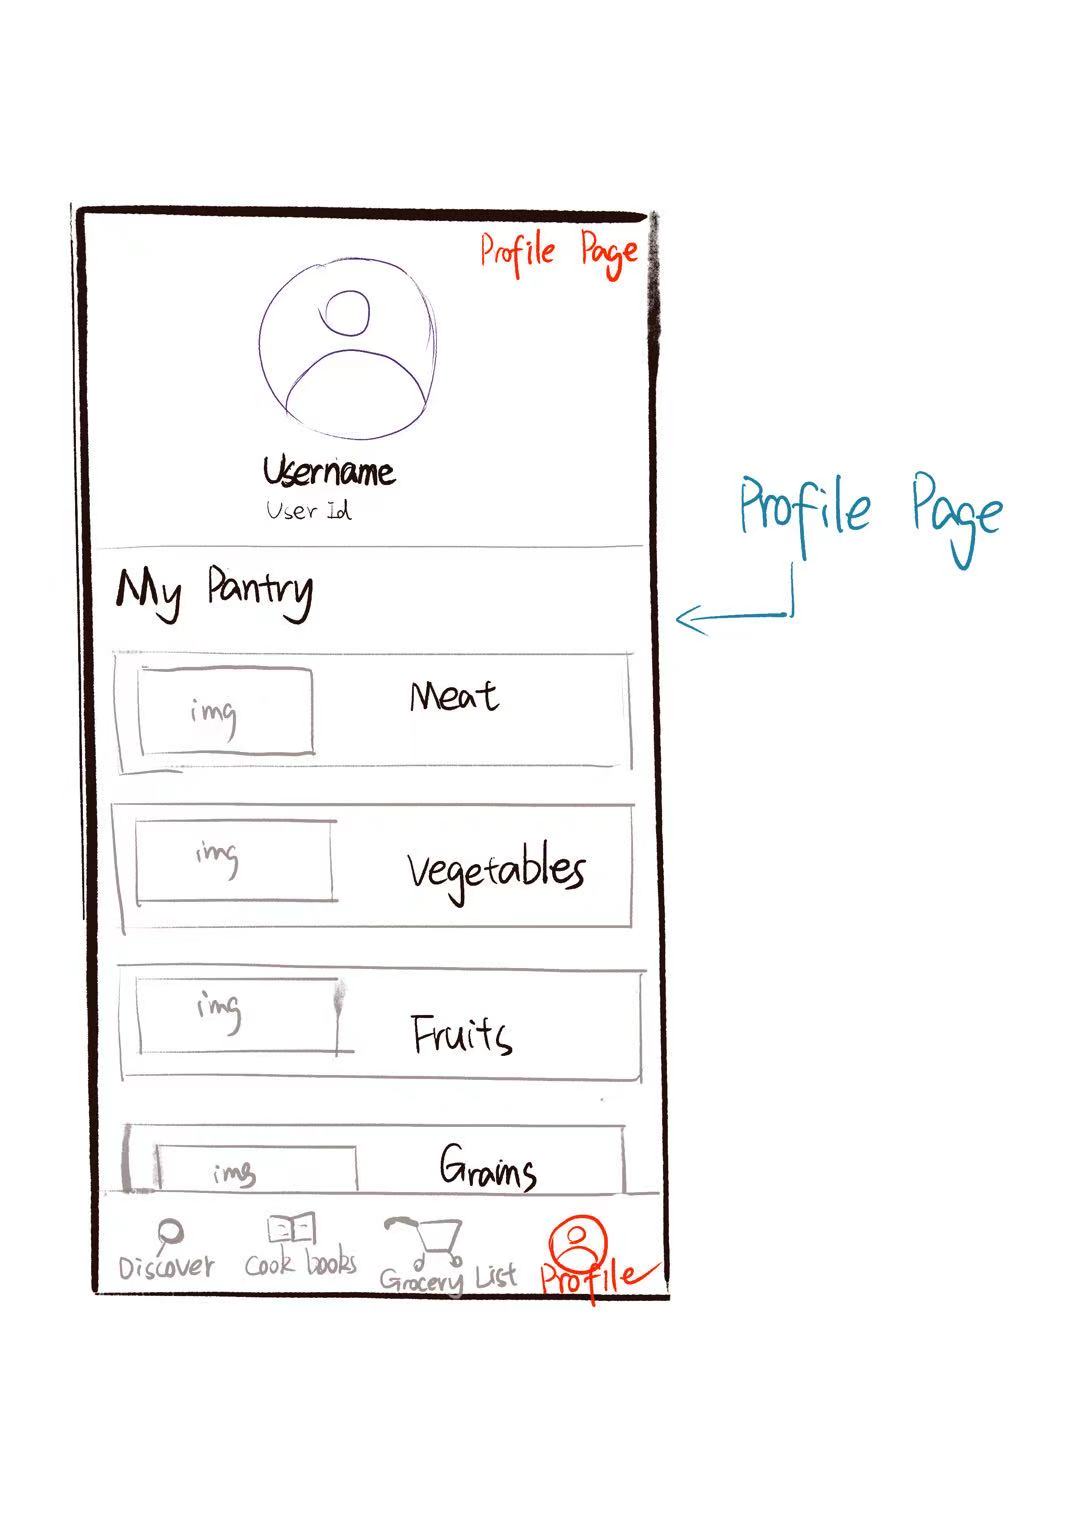 Profile Page
Username
User Id
Profile Page
My Pantry
img
Meat
img
Vegetables
img
Fruits
img
Grains
Discover
Cook books
Grocery List
Profile